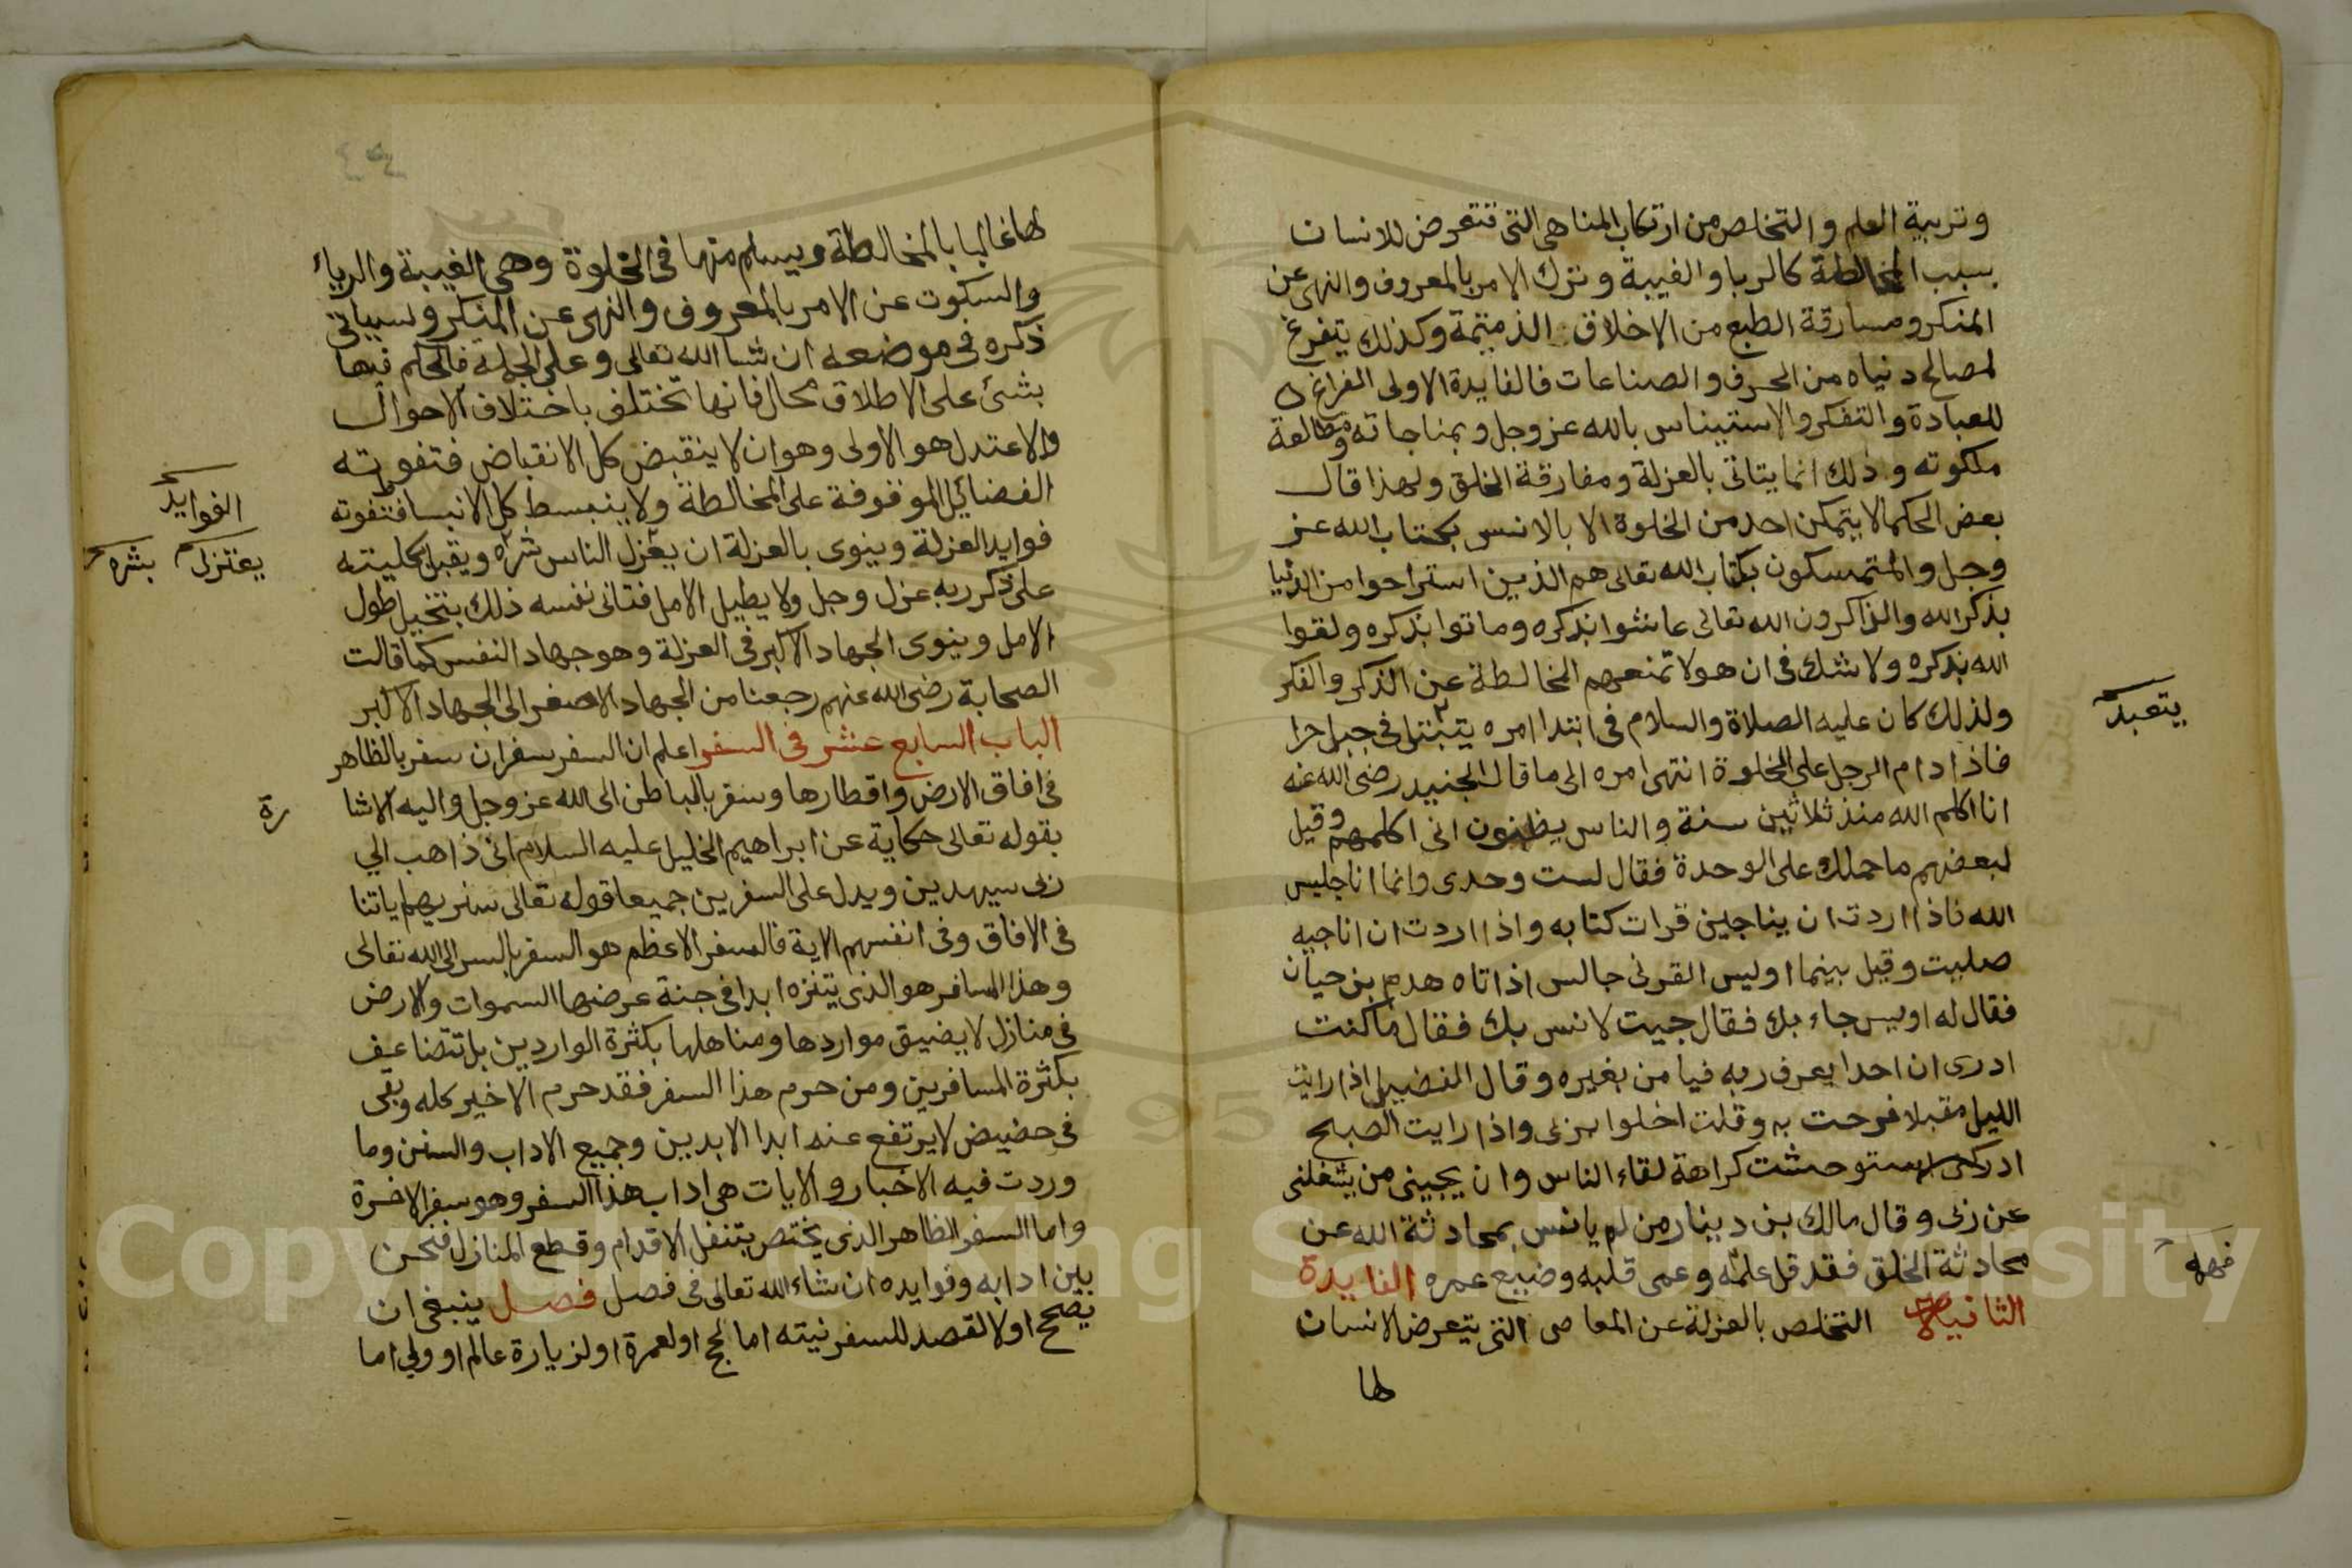 وتربية العلم والتخلص من ارتكاب المناهى التى تتعرض للانسان
بسبب المخالطة كالربا والغيبة وترك الامر بالمعروف والنهى عن
المنكر ومسارقة الطبع من الاخلاق الذميمة وكذلك يتفرغ
لمصالح دنياه من الحرف والصناعات فالفايدة الاولى الفراغ
للعبادة والتفكر والاستيناس بالله عز وجل وبمناجاته ومطالعة
ملكوته وذلك انما يتاتى بالعزلة ومفارقة الخلق ولهذا قال
بعض الحكما لا يتمكن احد من الخلوة الا بالانس بكتاب الله عز
وجل والمتمسكون بكتاب الله تعالى هم الذين استراحوا من الدنيا
بذكر الله والذاكرون الله تعالى عاشوا بذكره وماتوا بذكره ولقوا
الله بذكره ولا شك فى ان هولا تمنعهم المخالطة عن الذكر والفكر
ولذلك كان عليه الصلاة والسلام فى ابتدا امره يتبتل فى جبل حرا
يتعبد
فاذا دام الرجل على الخلوة انتهى امره الى ما قال الجنيد رضى الله عنه
انا اكلم الله منذ ثلاثين سنة والناس يظنون انى اكلمهم وقيل
لبعضهم ما حملك على الوحدة فقال لست وحدى وانما انا جليس
الله فاذا اردت ان يناجين قرات كتابه واذا اردت ان اناجيه
صليت وقيل بينما اويس القرنى جالس اذ اتاه هدم بن حيان
فقال له اويس جاء بك فقال جيت لانس بك فقال ما كنت
ادرى ان احدا يعرف ربه فيامن بغيره وقال الفضيل اذا رايت
الليل مقبلا فرحت به وقلت اخلوا بربى واذا رايت الصبح
ادركنى استوحشت كراهة لقاء الناس وان يجينى من يشغلنى
عن ربى وقال مالك بن دينار من لم يانس بمحادثة الله عن
محادثة الخلق فقد قل علمه وعمى قلبه وضيع عمره الفايدة
فهمه
الثانية التخلص بالعزلة عن المعاصى التى يتعرض الانسان
لها
لها غالبا بالمخالطة ويسلم منها فى الخلوة وهى الغيبة والرياء
والسكوت عن الامر بالمعروف والنهى عن المنكر وسياتى
ذكره فى موضعه ان شا الله تعالى وعلى الجملة فالحكم فيها
بشئ على الاطلاق محال فانها تختلف باختلاف الاحوال
والاعتدل هو الاولى وهو ان لا ينقبض كل الانقباض فتفوته
الفضائل الموقوفة على المخالطة ولا ينبسط كل الانبساط فتفوته
الفوايد
فوايد العزلة وينوى بالعزلة ان يعزل الناس شره ويقبل بكليته
يعتزل بشره
على ذكر ربه عزل وجل ولا يطيل الامل فتانى نفسه ذلك بتخيل طول
الامل وينوى الجهاد الاكبر فى العزلة وهو جهاد النفس كما قالت
الصحابة رضى الله عنهم رجعنا من الجهاد الاصغر الى الجهاد الاكبر
الباب السابع عشر فى السفر اعلم ان السفر سفران سفر بالظاهر
فى افاق الارض واقطارها وسفر بالباطن الى الله عز وجل واليه الاشا
رة
بقوله تعالى حكاية عن ابراهيم الخليل عليه السلام انى ذاهب الي
ربى سيهدين ويدل على السفرين جميعا قوله تعالى سنريهم اياتنا
فى الافاق وفى انفسهم الاية فالسفر الاعظم هو السفر بالسر الى الله تعالى
وهذا المسافر هو الذى يتنزه ابدا فى جنة عرضها السموات والارض
فى منازل لا يضيق مواردها ومناهلها بكثرة الواردين بل تتضاعف
بكثرة المسافرين ومن حرم هذا السفر فقد حرم الاخير كله وبقى
فى حضيض لا يرتفع عنه ابدا الابدين وجميع الاداب والسنن وما
وردت فيه الاخبار والايات هى اداب هذا السفر وهو سفر الاخرة
واما السفر الظاهر الذى يختص بتنقل الاقدام وقطع المنازل فنحن
بين ادابه وفوايده ان شاء الله تعالى فى فصل فصل ينبغى ان
يصحح اولا لقصد للسفر نيته اما لحج او لعمرة او لزيارة عالم او ولي اما
Copyright © King Saud University